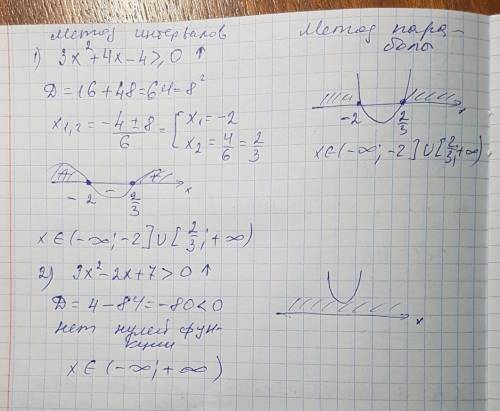 Метод интервалов
1) 3x² + 4x - 4 ≥ 0 ↑
D = 16 + 48 = 64 = 8²
x₁,₂ = (-4 ± 8)/6 = { x₁ = -2
x₂ = 4/6 = 2/3
+ - +
-2 2/3 x
x ∈ (-∞; -2] ∪ [2/3; +∞)
2) 3x² - 2x + 7 > 0 ↑
D = 4 - 84 = -80 < 0
нет нулей фун-
кции
x ∈ (-∞; +∞)
Метод пара-
болы
-2 2/3 x
x ∈ (-∞; -2] ∪ [2/3; +∞)
x